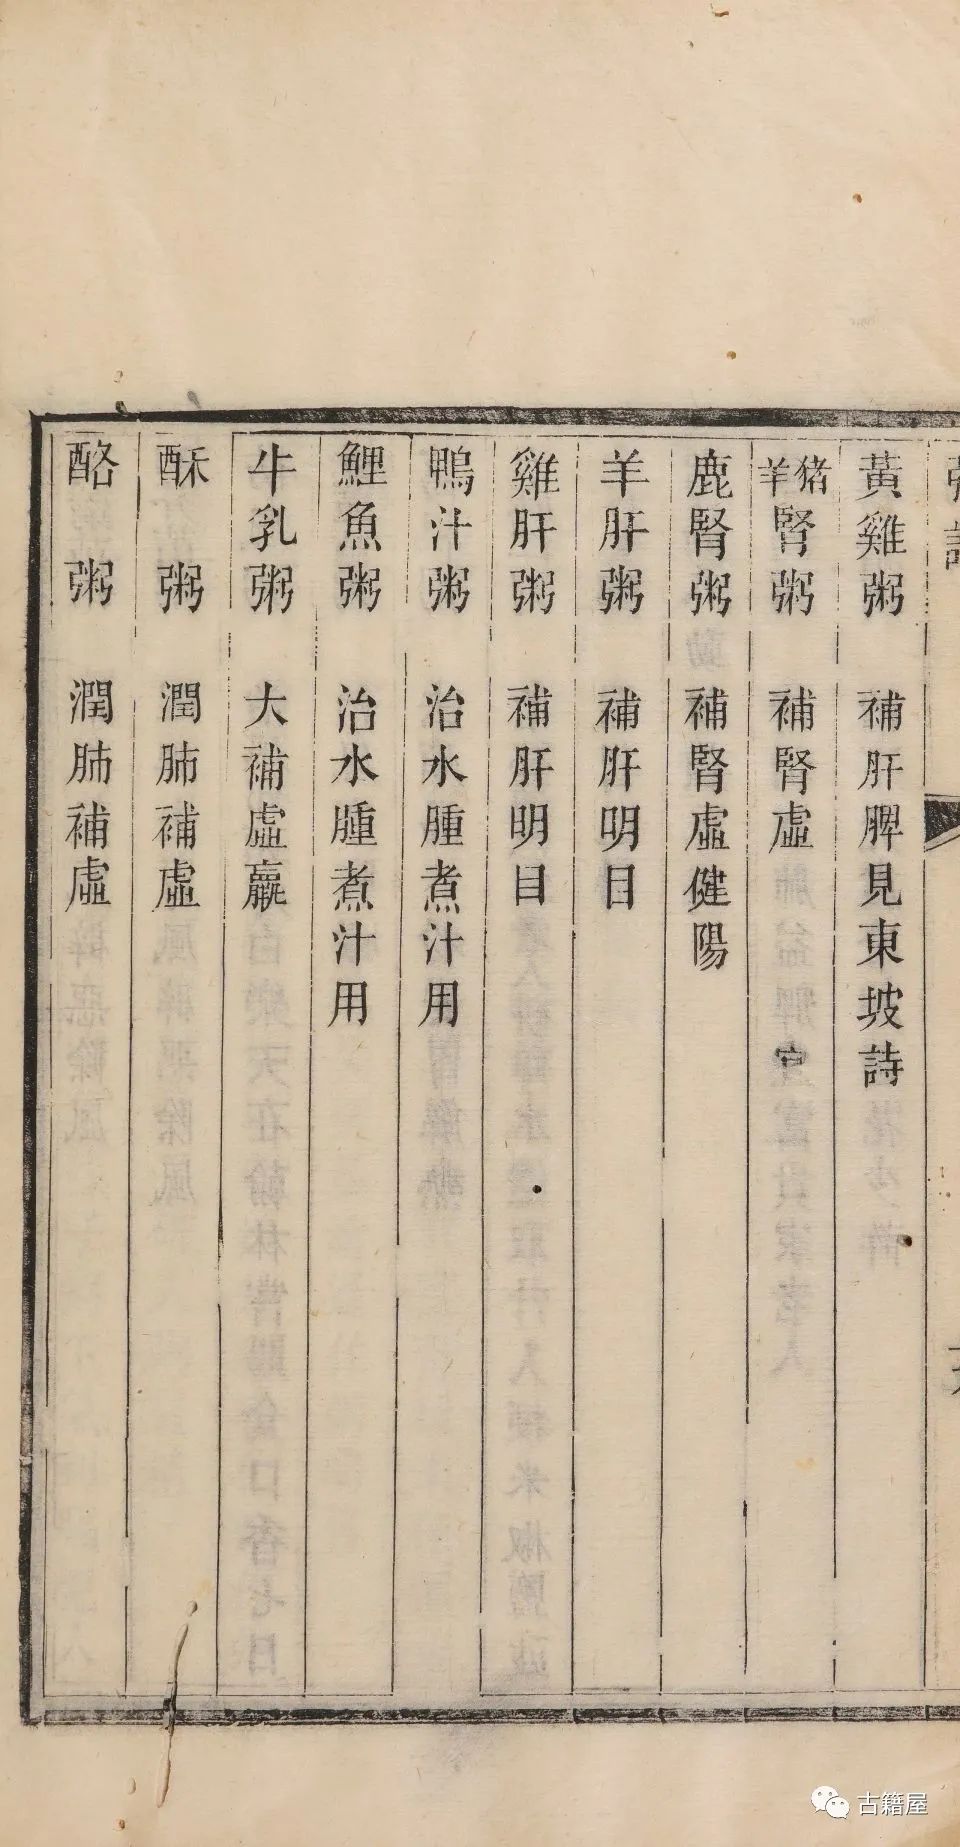 黃雞粥　補肝脾見東坡詩
猪羊腎粥　補腎虛
鹿腎粥　補腎虛健陽
羊肝粥　補肝明目
雞肝粥　補肝明目
鴨汁粥　治水腫煮汁用
鯉魚粥　治水腫煮汁用
牛乳粥　大補虛羸
酥粥　潤肺補虛
酪粥　潤肺補虛
古籍屋